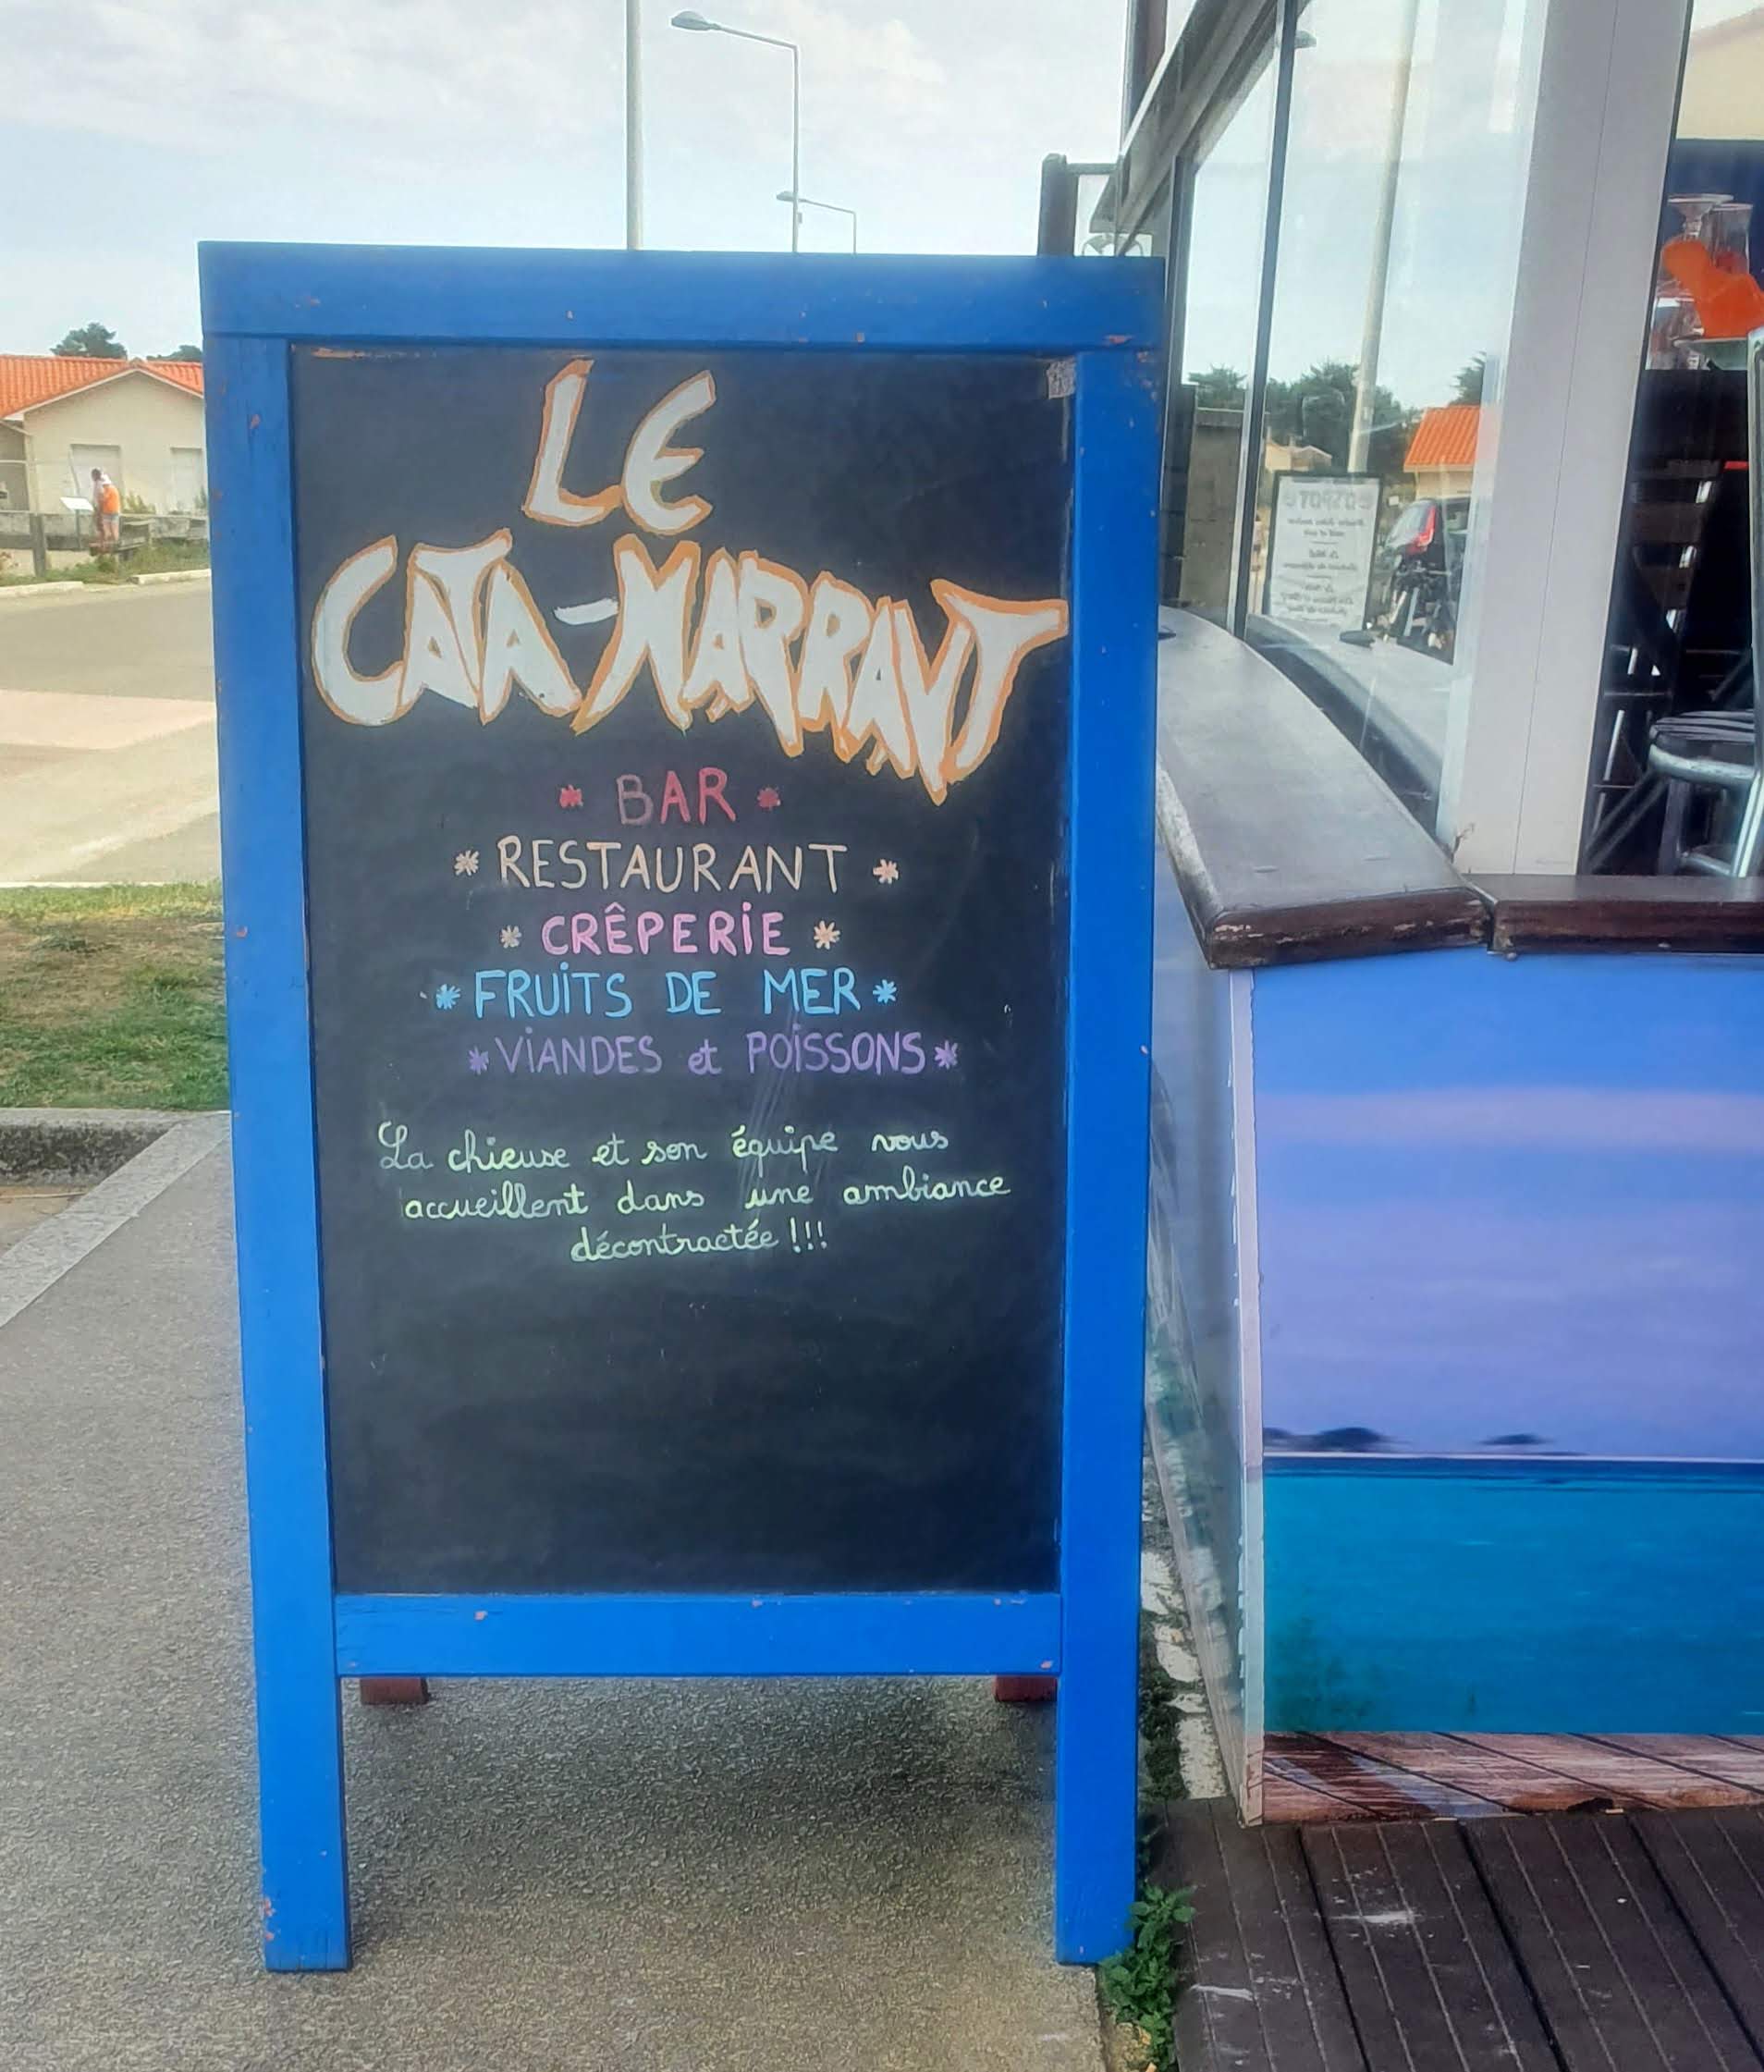 LE
CATA-MARRANT
* BAR *
* RESTAURANT *
* CRÊPERIE *
* FRUITS DE MER *
* VIANDES et POISSONS *
La chieuse et son équipe vous
accueillent dans une ambiance
décontractée !!!